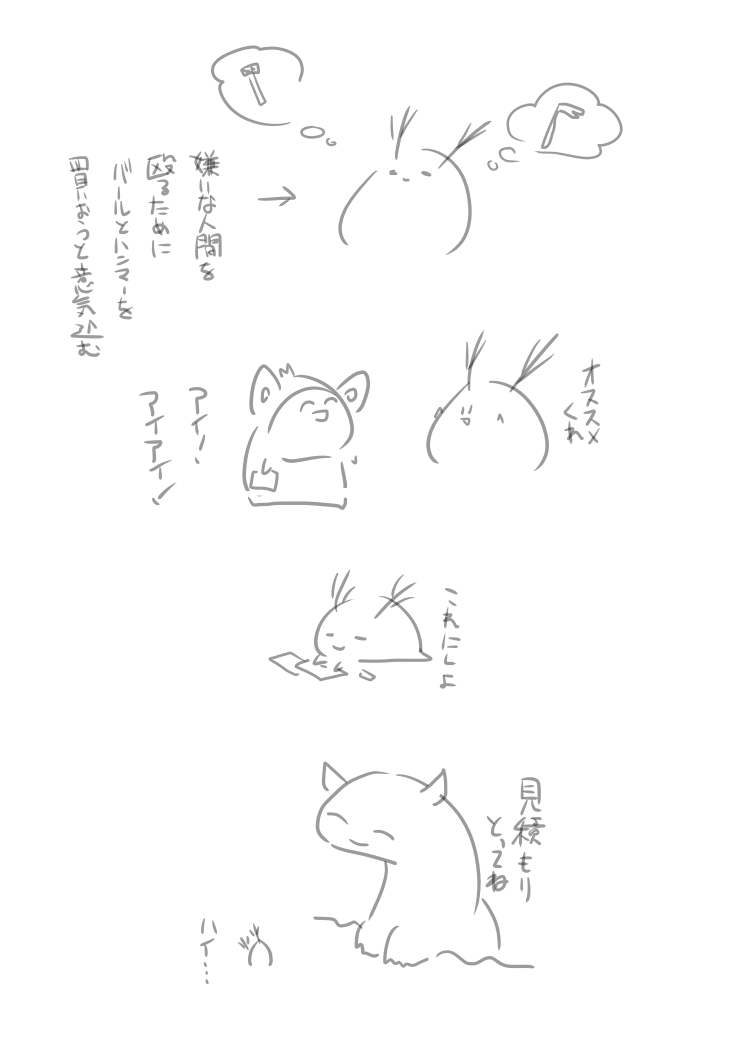 嫌いな人間を
殴るために
バールとハンマーを
買おうと意気込む
オススメ
くれ
アイ!
アイアイ!
これにしよ
見積もり
とってね
ハイ…